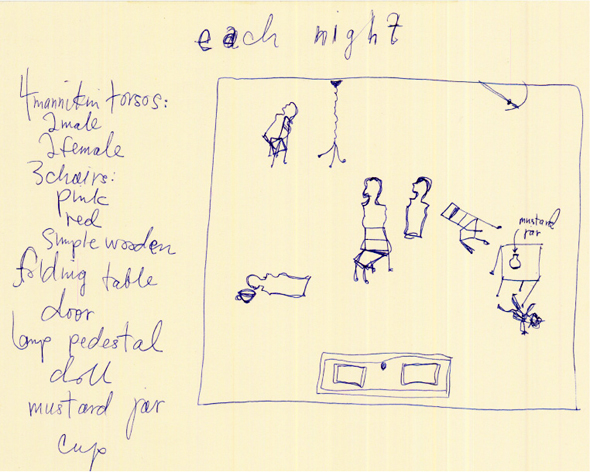 each night
4 mannikin torsos:
2 male
2 female
3 chairs:
pink
red
simple wooden
folding table
door
lamp pedestal
doll
mustard jar
cup
mustard
jar